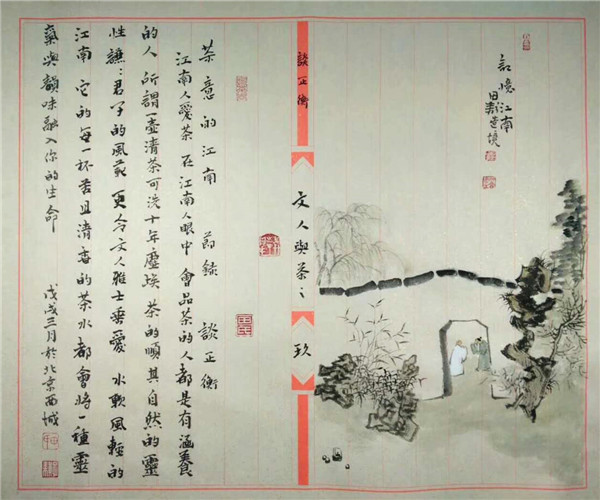 記憶江南
談正衡
文人與茶：
玖
茶意的江南 節錄 談正衡
江南人愛茶 在江南人眼中 會品茶的人都是有涵養
的人 所謂一壺清茶可洗十年塵埃 茶的順其自然的靈
性 謙：君子的風範 更令文人雅士垂愛 水軟風輕的
江南 它的每一杯苦且清香的茶水都會將一種靈
氣與韻味融入你的生命
戊戌三月於北京西城